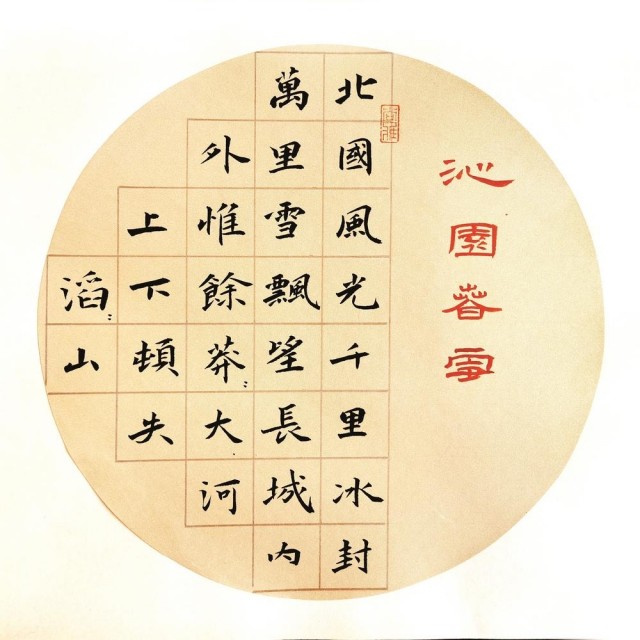 沁園春雪
北國風光千里冰封
萬里雪飄望長城内
外惟餘莽〻大河
上下頓失
滔〻山